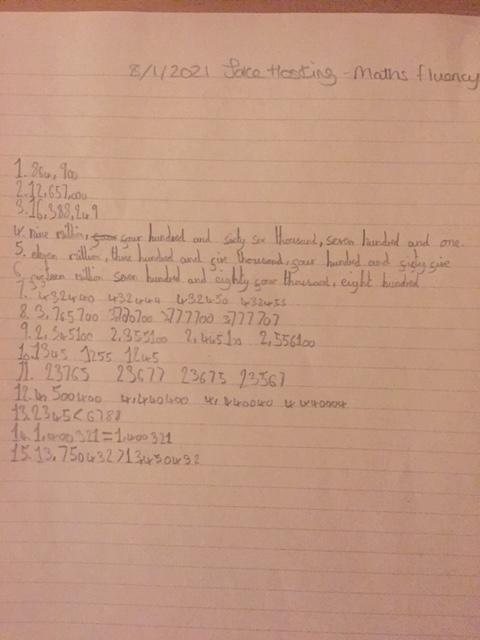 8/1/2021 Jake Hosking - Maths fluency
1. 864,900
2. 12,657,000
3. 16,388,249
4. nine million, four hundred and sixty six thousand, seven hundred and one.
5. eleven million, three hundred and five thousand, four hundred and sixty five
6. million seven hundred and eighty four thousand, eight hundred
7. 432400 432444 432450 432455
8. 3,765700 3770700 3777700 3777707
9. 2,345100 2,355100 2,445100 2,556100
10. 1345 1255 1245
11. 23765 23677 23675 23567
12. 4,500400 4,440400 4,440040 4,440004
13. 2345<6788
14. 1,400321=1,400321
15. 13,750432>13450432